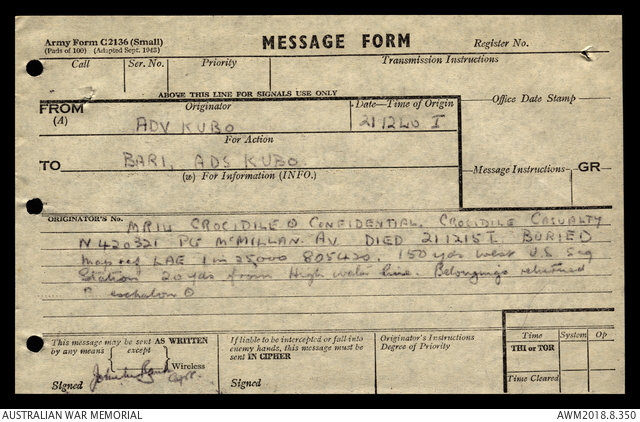 Army Form C2136 (Small)
(Pads of 100) (Adapted Sept. 1942)
MESSAGE FORM
Register No.
Call
Ser. No.
Priority
Transmission Instructions
ABOVE THIS LINE FOR SIGNALS USE ONLY
FROM
(A)
Originator
Date—Time of Origin
Office Date Stamp
ADV KUBO
211240 I
For Action
TO
BARI, ADS KUBO.
(W) For Information (INFO.)
Message Instructions
GR
ORIGINATOR'S No.
CROCIDILE CONFIDENTIAL. CROCIDILE CASUALTY
N420321 McMILLAN. AV DIED 211215 I. BURIED
Map ref LAE 1 in 25000 805420. 150 yds West U.S. Sig
Station 20 yds from High water line. Belongings returned
eschalon
This message may be sent AS WRITTEN
by any means
except
Wireless
Signed
Capt.
If liable to be intercepted or fall into
enemy hands, this message must be
sent IN CIPHER
Signed
Originator's Instructions
Degree of Priority
Time
System
Op
THI or TOR
Time Cleared
AUSTRALIAN WAR MEMORIAL
AWM2018.8.350